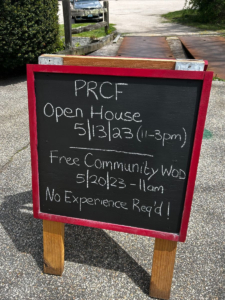 PRCF
Open House
5/13/23 (11-3pm)
Free Community WOD
5/20/23 - 11am
No Experience Req'd!